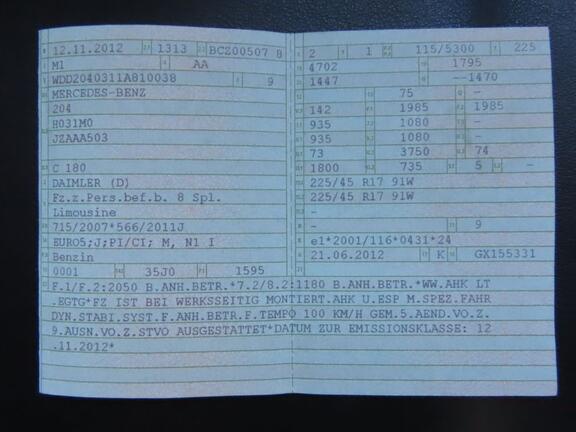 12.11.2012 1313 BCZ00507 8
M1 AA
WDD2040311A810038 9
MERCEDES-BENZ
204
H031M0
JZAAA503
C 180
DAIMLER (D)
Fz.z.Pers.bef.b. 8 Spl.
Limousine
715/2007*566/2011J
EURO5;J;PI/CI; M, N1 I
Benzin
0001 35J0 1595
2 1 115/5300 225
4702 1795
1447 --1470
75 -
142 1985 1985
935 1080 -
935 1080 -
73 3750 74
1800 735 5 -
225/45 R17 91W
225/45 R17 91W
-
- 9
e1*2001/116*0431*24
21.06.2012 K GX155331
F.1/F.2:2050 B.ANH.BETR.*7.2/8.2:1180 B.ANH.BETR.*WW.AHK LT
.EGTG*FZ IST BEI WERKSSEITIG MONTIERT.AHK U.ESP M.SPEZ.FAHR
DYN.STABI.SYST.F.ANH.BETR.F.TEMPO 100 KM/H GEM.5.AEND.VO.Z.
9.AUSN.VO.Z.STVO AUSGESTATTET*DATUM ZUR EMISSIONSKLASSE: 12
.11.2012*